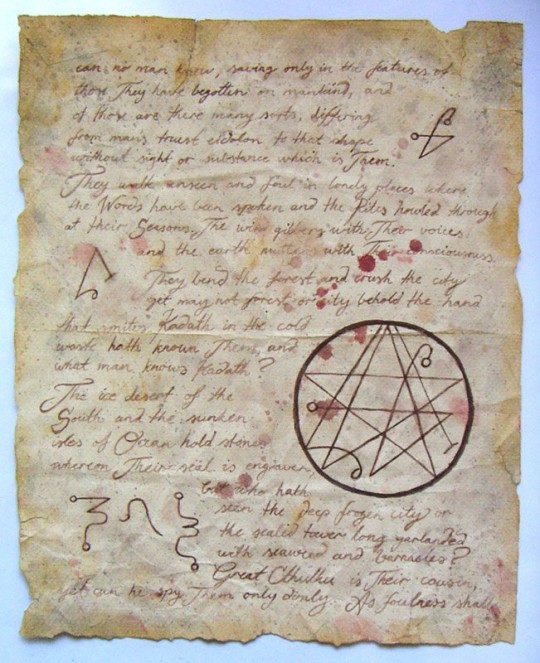 can no man know, saving only in the features of
those They have begotten on mankind, and
of those are there many sorts, differing
from man's truest eidolon to that shape
without sight or substance which is Them.
They walk unseen and foul in lonely places where
the Words have been spoken and the Rites howled through
at their Seasons. The wind gibbers with Their voices
and the earth mutters with Their consciousness.
They bend the forest and crush the city
yet may not forest or city behold the hand
that smites. Kadath in the cold
waste hath known Them, and
what man knows Kadath?
The ice desert of the
South and the sunken
isles of Ocean hold stones
whereon Their seal is engraven,
but who hath
seen the deep frozen city or
the sealed tower long garlanded
with seaweed and barnacles?
Great Cthulhu is Their cousin,
yet can he spy Them only dimly. As foulness shall